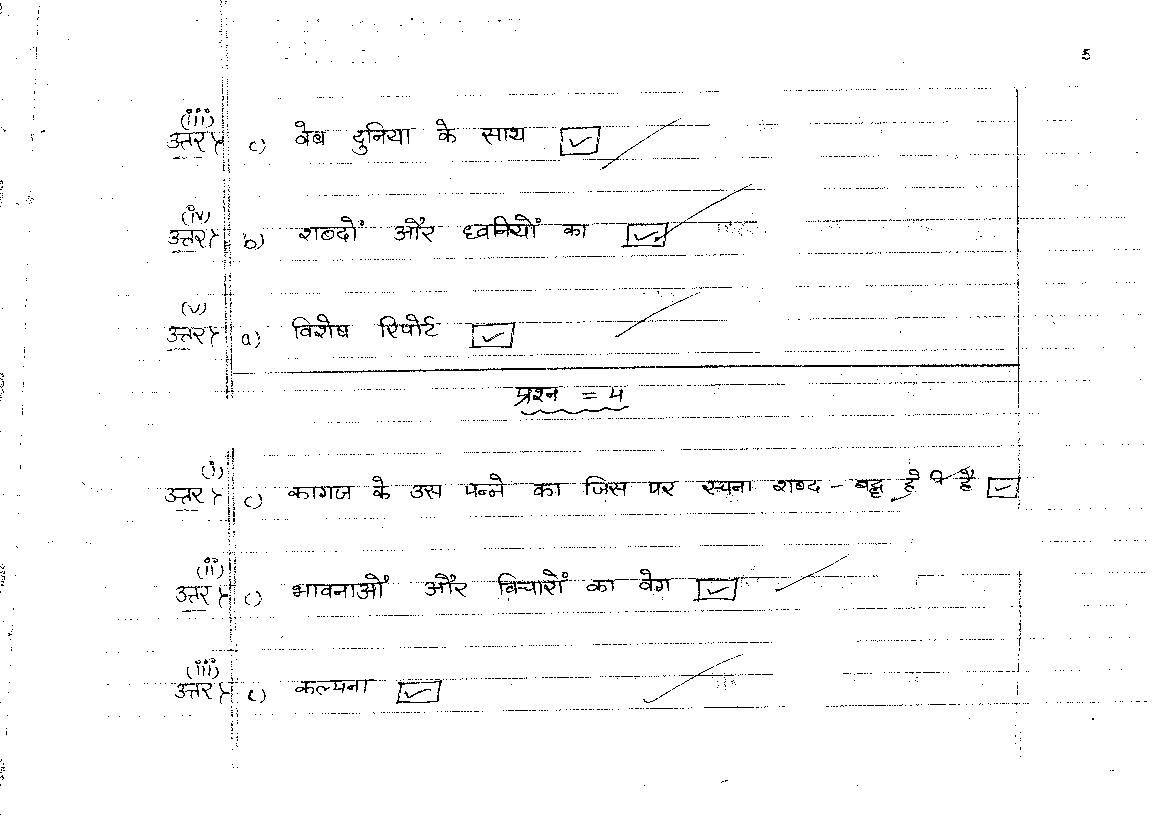 5
(iii)
उत्तर > c) वेब दुनिया के साथ ✓
(iv)
उत्तर > b) शब्दों और ध्वनियों का ✓
(v)
उत्तर > a) विशेष रिपोर्ट ✓
प्रश्न = 4
(i)
उत्तर > c) कागज के उस पन्ने का जिस पर रचना शब्द - बद्ध होती है ✓
(ii)
उत्तर > c) भावनाओं और विचारों का वेग ✓
(iii)
उत्तर > c) कल्पना ✓